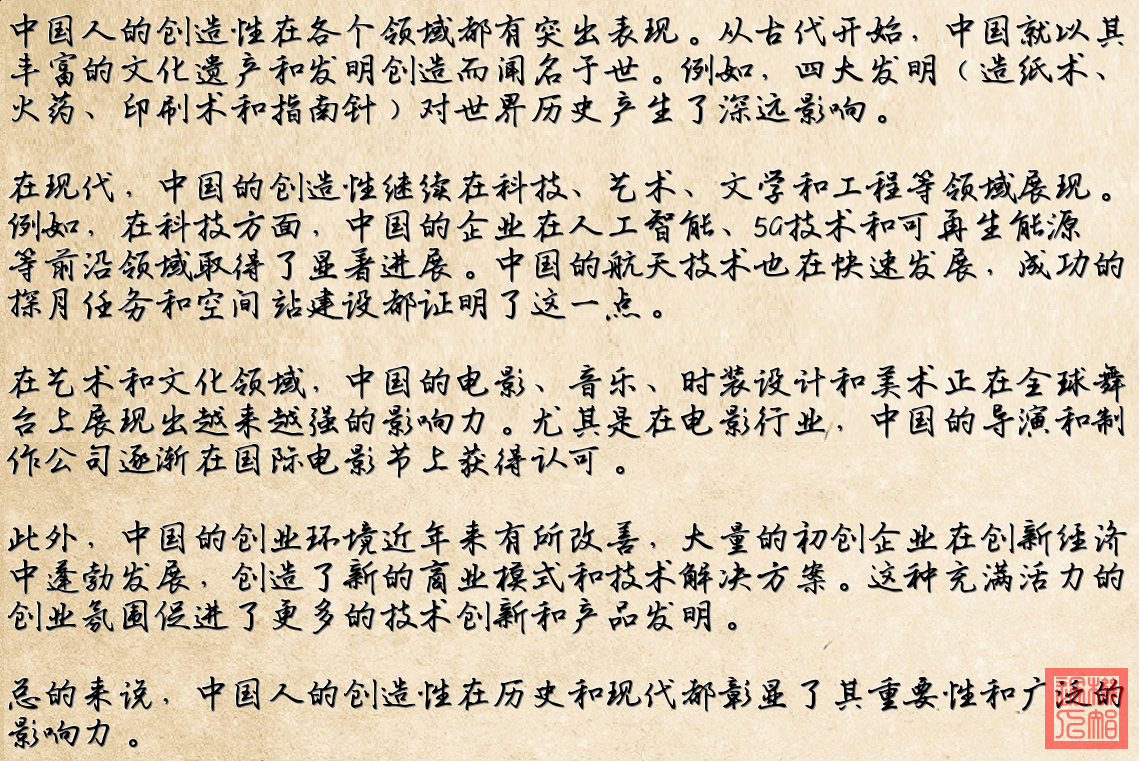 中国人的创造性在各个领域都有突出表现。从古代开始，中国就以其
丰富的文化遗产和发明创造而闻名于世。例如，四大发明（造纸术、
火药、印刷术和指南针）对世界历史产生了深远影响。
在现代，中国的创造性继续在科技、艺术、文学和工程等领域展现。
例如，在科技方面，中国的企业在人工智能、5G技术和可再生能源
等前沿领域取得了显著进展。中国的航天技术也在快速发展，成功的
探月任务和空间站建设都证明了这一点。
在艺术和文化领域，中国的电影、音乐、时装设计和美术正在全球舞
台上展现出越来越强的影响力。尤其是在电影行业，中国的导演和制
作公司逐渐在国际电影节上获得认可。
此外，中国的创业环境近年来有所改善，大量的初创企业在创新经济
中蓬勃发展，创造了新的商业模式和技术解决方案。这种充满活力的
创业氛围促进了更多的技术创新和产品发明。
总的来说，中国人的创造性在历史和现代都彰显了其重要性和广泛的
影响力。